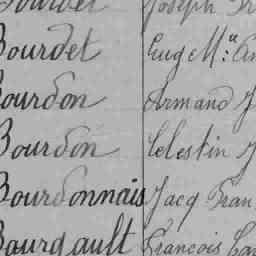 Bourdet Joseph
Bourdet Eug M.a
Bourdon Armand J
Bourdon Celestin J
Bourdonnais Jacq Fran
Bourgault Francois